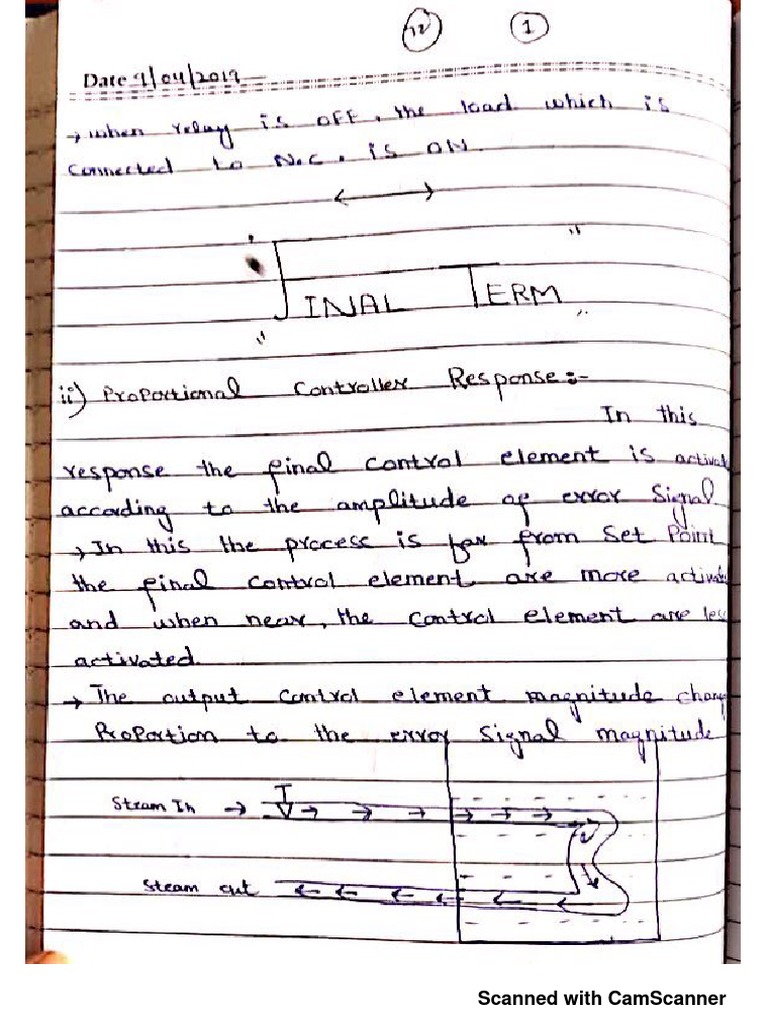 12 1
Date 9/04/2019
→ when relay is OFF, the load which is
connected to N.C. is ON.
FINAL TERM
ii) Proportional Controller Response:-
In this
response the final control element is activat
according to the amplitude of error Signal
→ In this the process is far from Set Point
the final control element are more activat
and when near, the control element are les
activated.
→ The output control element magnitude chang
Proportion to the error Signal magnitude
Steam In →
Steam out
Scanned with CamScanner